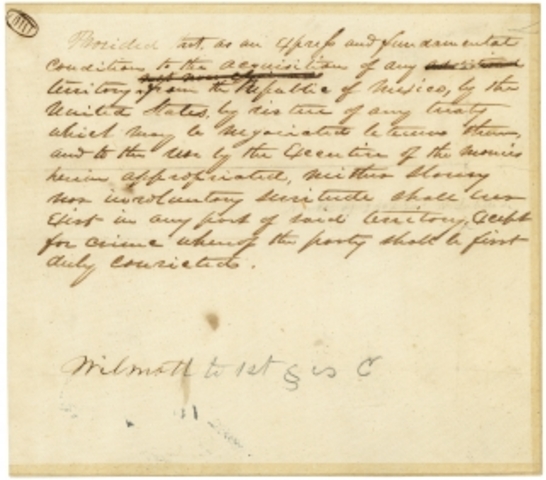 Provided that, as an express and fundamental
condition to the acquisition of any
territory from the Republic of Mexico, by the
United States, by virtue of any treaty
which may be negotiated between them,
and to the use by the Executive of the monies
herein appropriated, neither slavery
nor involuntary servitude shall ever
exist in any part of said territory, except
for crime whereof the party shall be first
duly convicted.
Wilmott to 1st § C